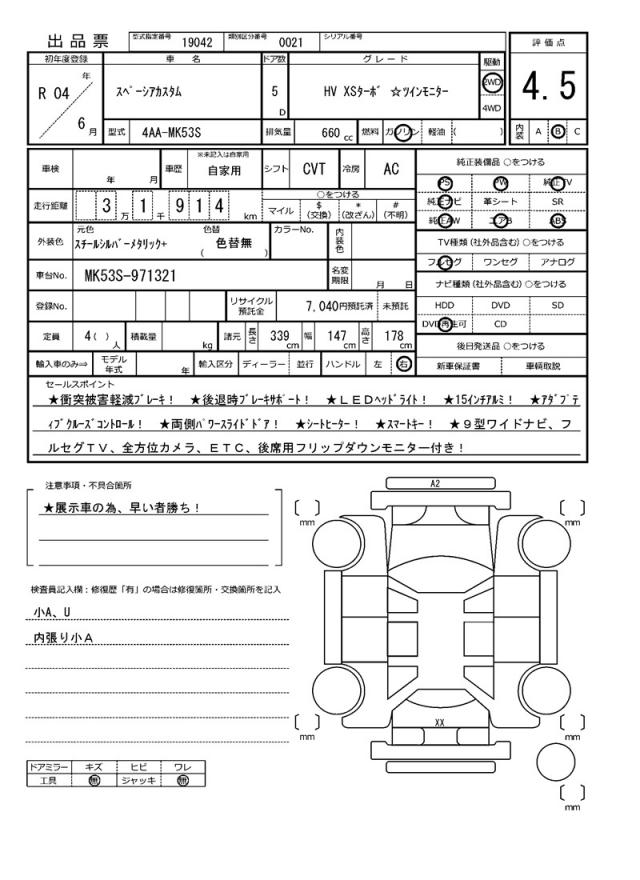 出品票 型式指定番号 19042 類別区分番号 0021 シリアル番号
初年度登録 車名 ドア数 グレード 駆動 評価点
R 04 年 6 月 スペーシアカスタム 5 D HV XSターボ ☆ツインモニター 2WD 4WD 4.5
型式 4AA-MK53S 排気量 660 cc 燃料 ガソリン 軽油 ( ) 内装 A B C
車検 年 月 車歴 ※未記入は自家用 自家用 シフト CVT 冷房 AC 純正装備品 ○をつける
PS PW 純正TV
走行距離 3 万 1 千 9 1 4 km ○をつける
マイル $ (交換) * (改ざん) # (不明)
純正ナビ 革シート SR
純正AW エアB ABS
外装色 元色 スチールシルバーメタリック+ 色替 ( 色替無 ) カラーNo. 内装色
TV種類 (社外品含む) ○をつける
フルセグ ワンセグ アナログ
車台No. MK53S-971321 名変期限 月 日
ナビ種類 (社外品含む) ○をつける
登録No. リサイクル預託金 7,040円預託済 未預託
HDD DVD SD
DVD再生可 CD
定員 4( ) 人 積載量 kg 諸元 長さ 339 cm 幅 147 cm 高さ 178 cm
後日発送品 ○をつける
輸入車のみ⇒ モデル年式 年 輸入区分 ディーラー 並行 ハンドル 左 右 新車保証書 車輌取説
セールスポイント
★衝突被害軽減ブレーキ! ★後退時ブレーキサポート! ★LEDヘッドライト! ★15インチアルミ! ★アダプテ
ィブクルーズコントロール! ★両側パワースライドドア! ★シートヒーター! ★スマートキー! ★9型ワイドナビ、フ
ルセグTV、全方位カメラ、ETC、後席用フリップダウンモニター付き!
注意事項・不具合箇所
★展示車の為、早い者勝ち!
検査員記入欄:修復歴「有」の場合は修復箇所・交換箇所を記入
小A、U
内張り小A
ドアミラー キズ ヒビ ワレ
工具 無 ジャッキ 無
A2
[ ] mm
[ ] mm
XX
[ ] mm
[ ] mm
[ ] mm